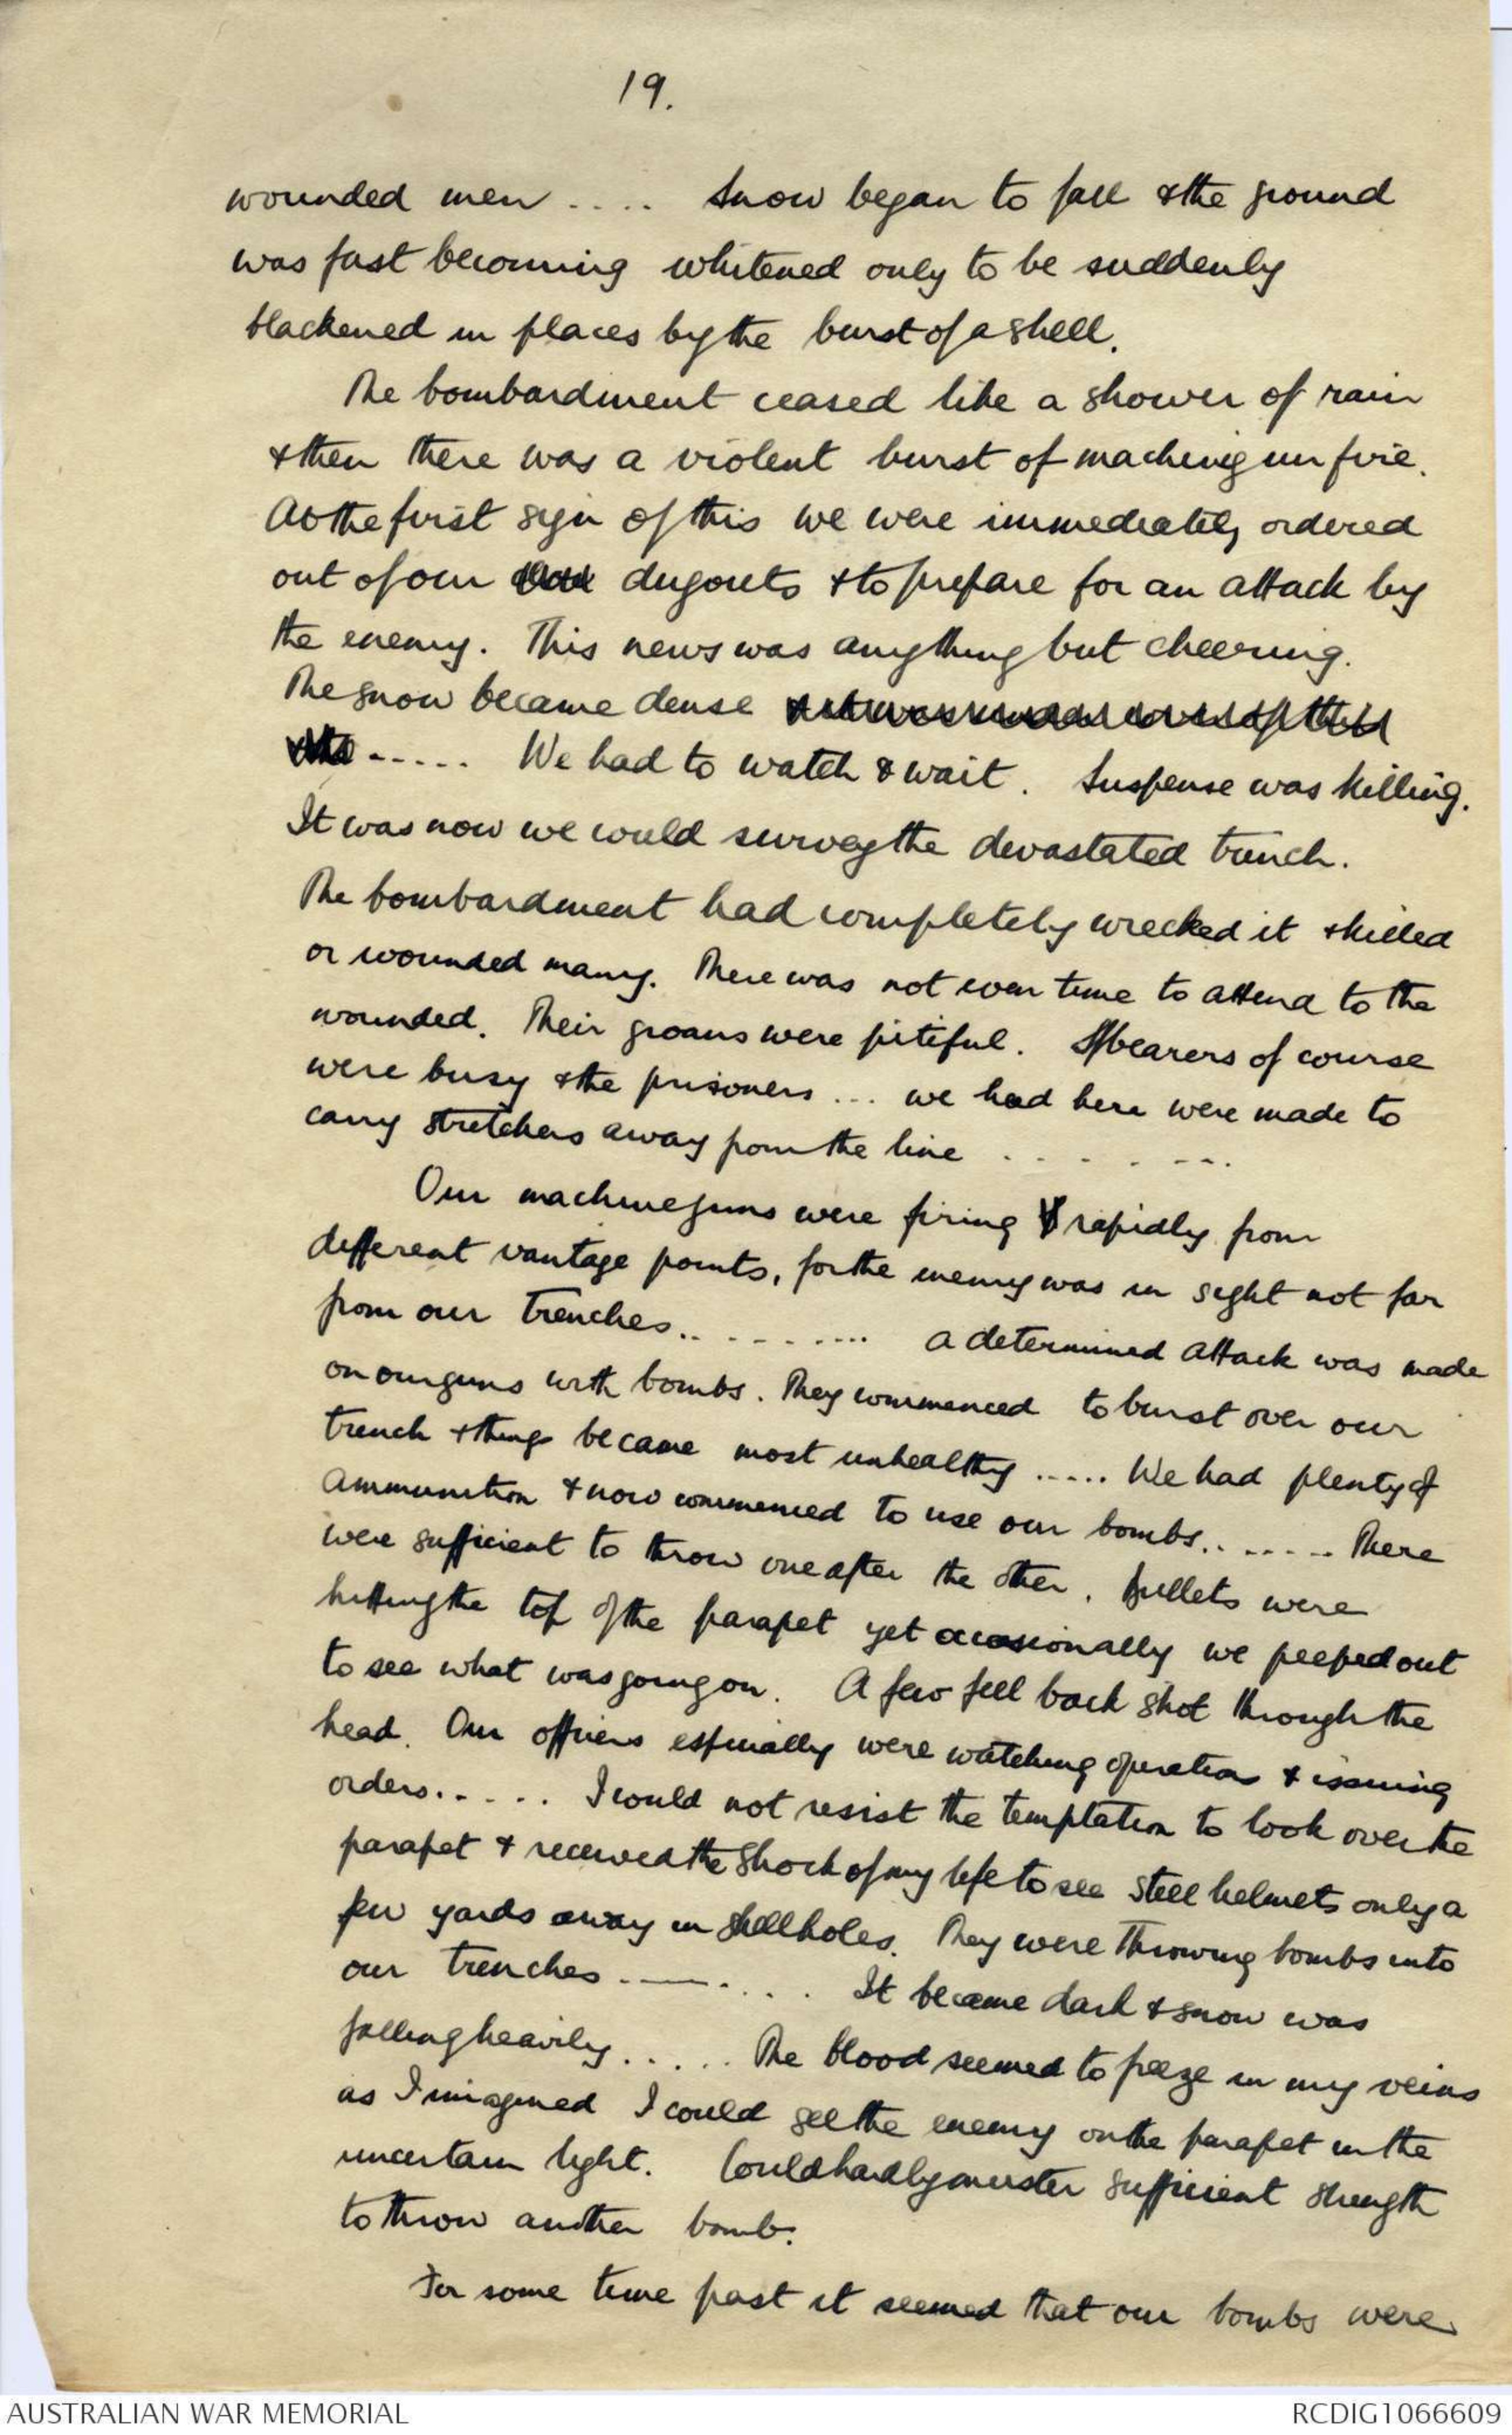 19.
wounded men .... Snow began to fall & the ground
was fast becoming whitened only to be suddenly
blackened in places by the burst of a shell.
The bombardment ceased like a shower of rain
& then there was a violent burst of machinegun fire.
At the first sign of this we were immediately ordered
out of our dugouts & to prepare for an attack by
the enemy. This news was anything but cheering.
The snow became dense
..... We had to watch & wait. Suspense was killing.
It was now we could survey the devastated trench.
The bombardment had completely wrecked it & killed
or wounded many. There was not even time to attend to the
wounded. Their groans were pitiful. S/bearers of course
were busy & the prisoners ... we had here were made to
carry stretchers away from the line . . . . . - - .
Our machineguns were firing rapidly from
different vantage points, for the enemy was in sight not far
from our trenches.. . - - - .... a determined attack was made
on our guns with bombs. They commenced to burst over our
trench & things became most unhealthy ..... We had plenty of
ammunition & now commenced to use our bombs. . ..... There
were sufficient to throw one after the other. Bullets were
hitting the top of the parapet yet occasionally we peeped out
to see what was going on. A few fell back shot through the
head. Our officers especially were watching operations & issuing
orders. . . . . . I could not resist the temptation to look over the
parapet & received the shock of my life to see steel helmets only a
few yards away in shellholes. They were throwing bombs into
our trenches . —— . . . . It became dark & snow was
falling heavily. . . . . . The blood seemed to freeze in my veins
as I imagined I could see the enemy on the parapet in the
uncertain light. Could hardly muster sufficient strength
to throw another bomb.
For some time past it seemed that our bombs were
AUSTRALIAN WAR MEMORIAL
RCDIG1066609